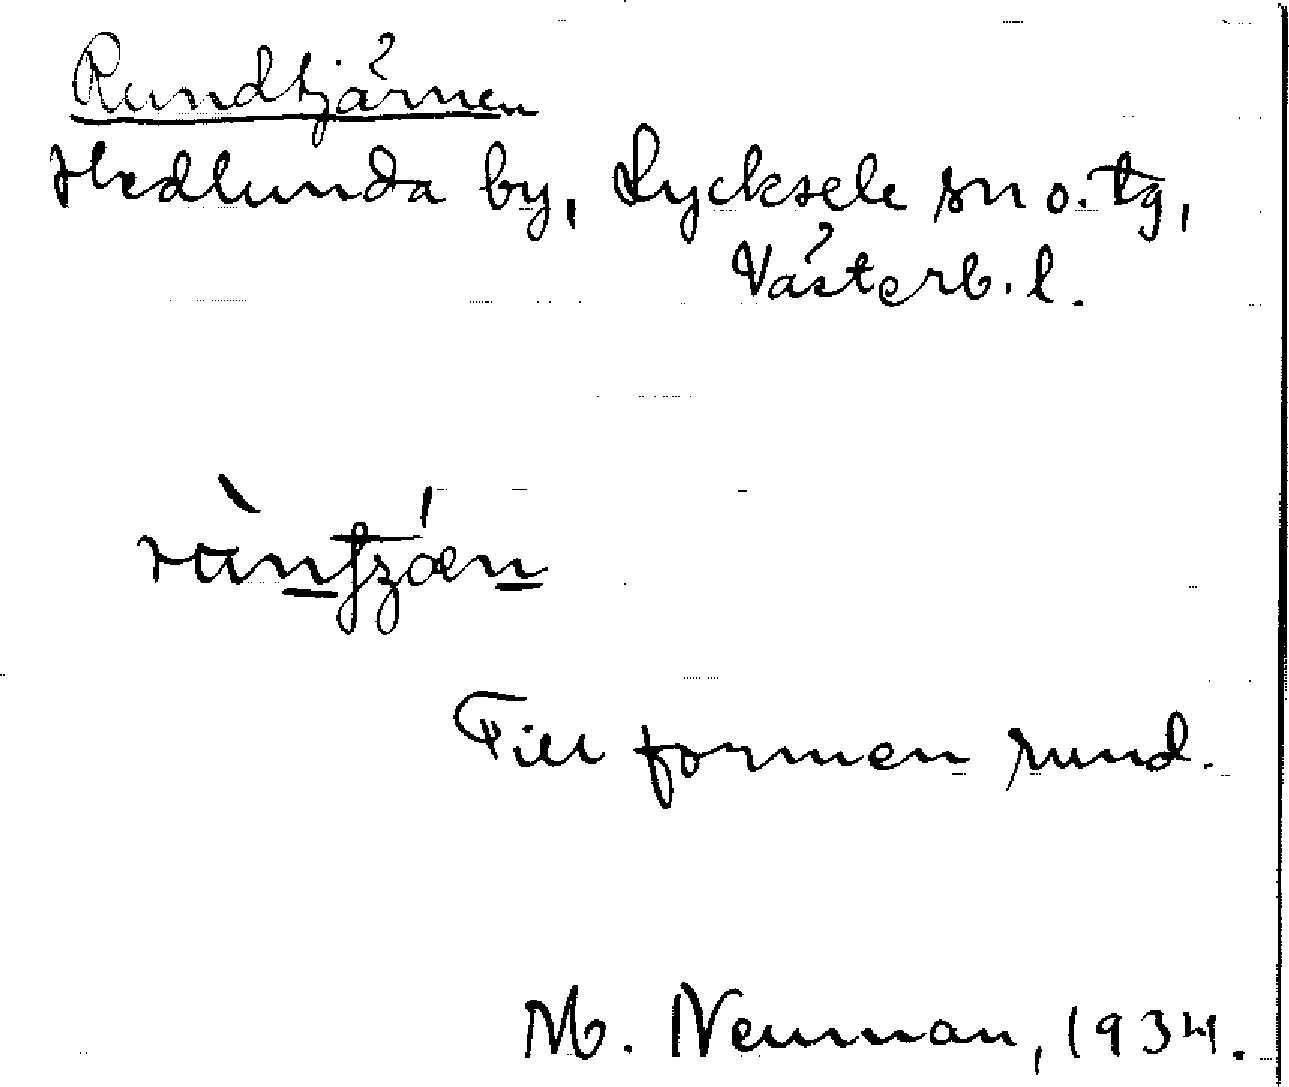 Rundtjärnen
Hedlunda by, Lycksele sn o. tg,
Västerb. l.
Till formen rund.
M. Neuman, 1934.